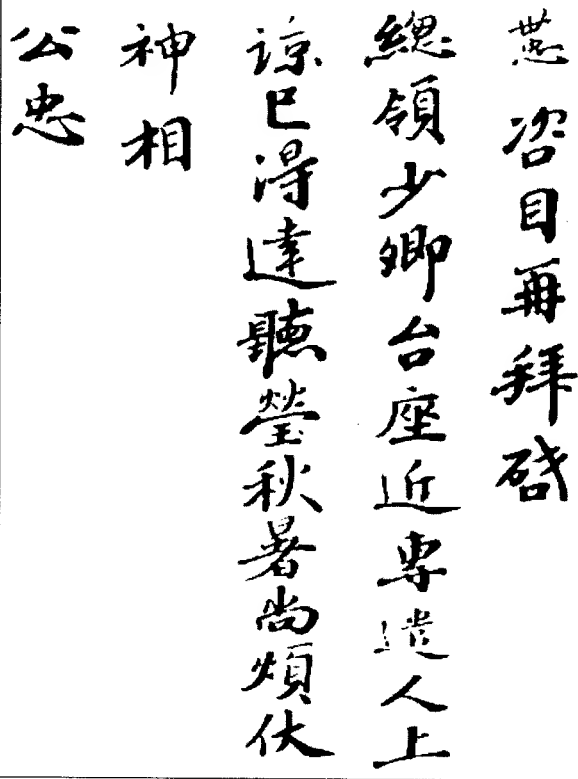 咨目再拜啓
總領少卿台座近専遣人上
諒已得達聽瑩秋暑尚煩伏
神相
公忠